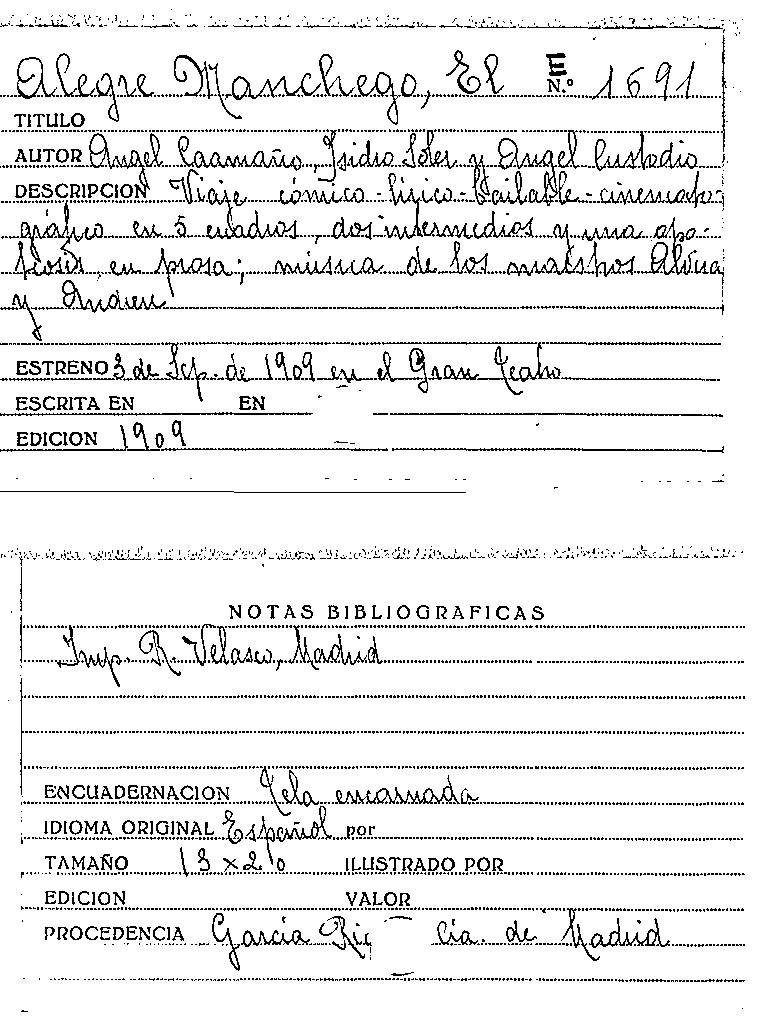 Alegre Manchego, El E N.º 1691
TITULO
AUTOR Angel Caamaño, Isidro Soler y Angel Custodio
DESCRIPCION Viaje cómico-lírico-bailable-cinemato-
gráfico en 5 cuadros, dos intermedios y una apo-
teosis, en prosa; música de los maestros Alvira
y Andreu
ESTRENO 3 de Sep. de 1909 en el Gran Teatro
ESCRITA EN EN
EDICION 1909
NOTAS BIBLIOGRAFICAS
Imp. R. Velasco, Madrid
ENCUADERNACION Tela encarnada
IDIOMA ORIGINAL Español por
TAMAÑO 13 x 20 ILUSTRADO POR
EDICION VALOR
PROCEDENCIA García Rico Cía. de Madrid